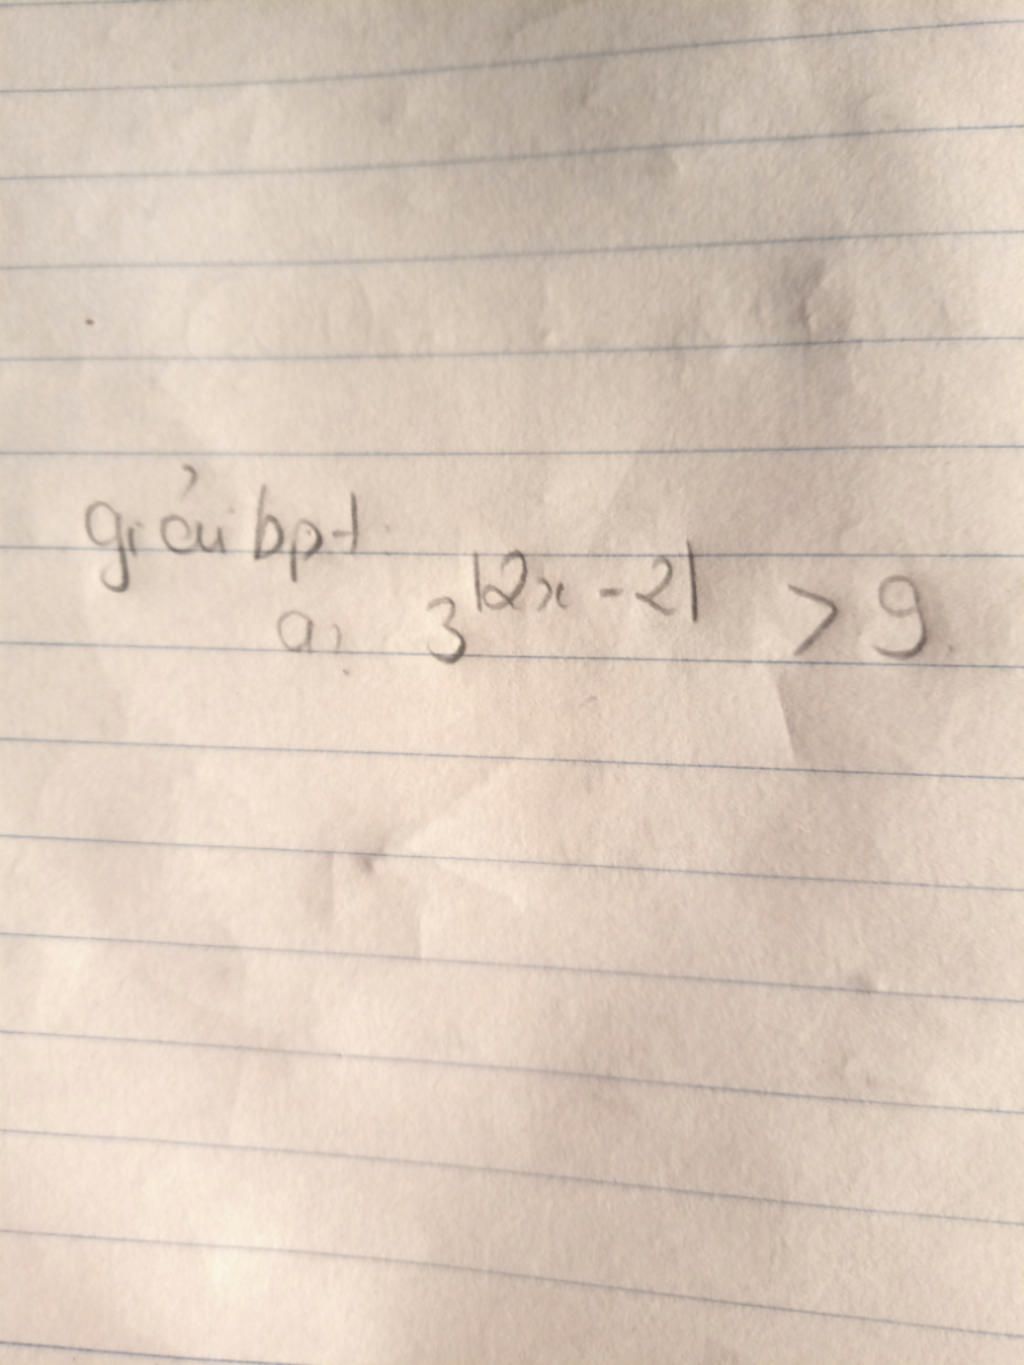 giải bpt
a, 3^|2x - 2| > 9